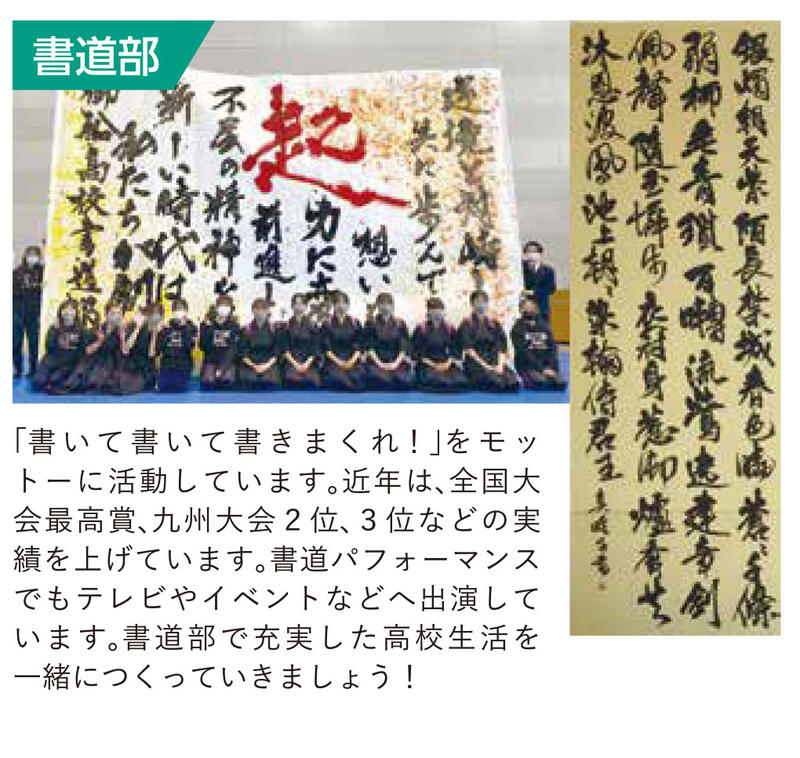 書道部
逆境
共に歩んで
想い
力に
前進し
起
不屈の精神を
新しい時代は
私たちが創
高校書道部
銀燭朝天紫陌長禁城春色曉蒼々千條
弱柳垂青瑣百囀流鶯遶建章劍
佩聲隨玉墀步衣冠身惹御爐香共
沐恩波鳳池上朝々染翰侍君王
「書いて書いて書きまくれ！」をモッ
トーに活動しています。近年は、全国大
会最高賞、九州大会２位、３位などの実
績を上げています。書道パフォーマンス
でもテレビやイベントなどへ出演して
います。書道部で充実した高校生活を
一緒につくっていきましょう！